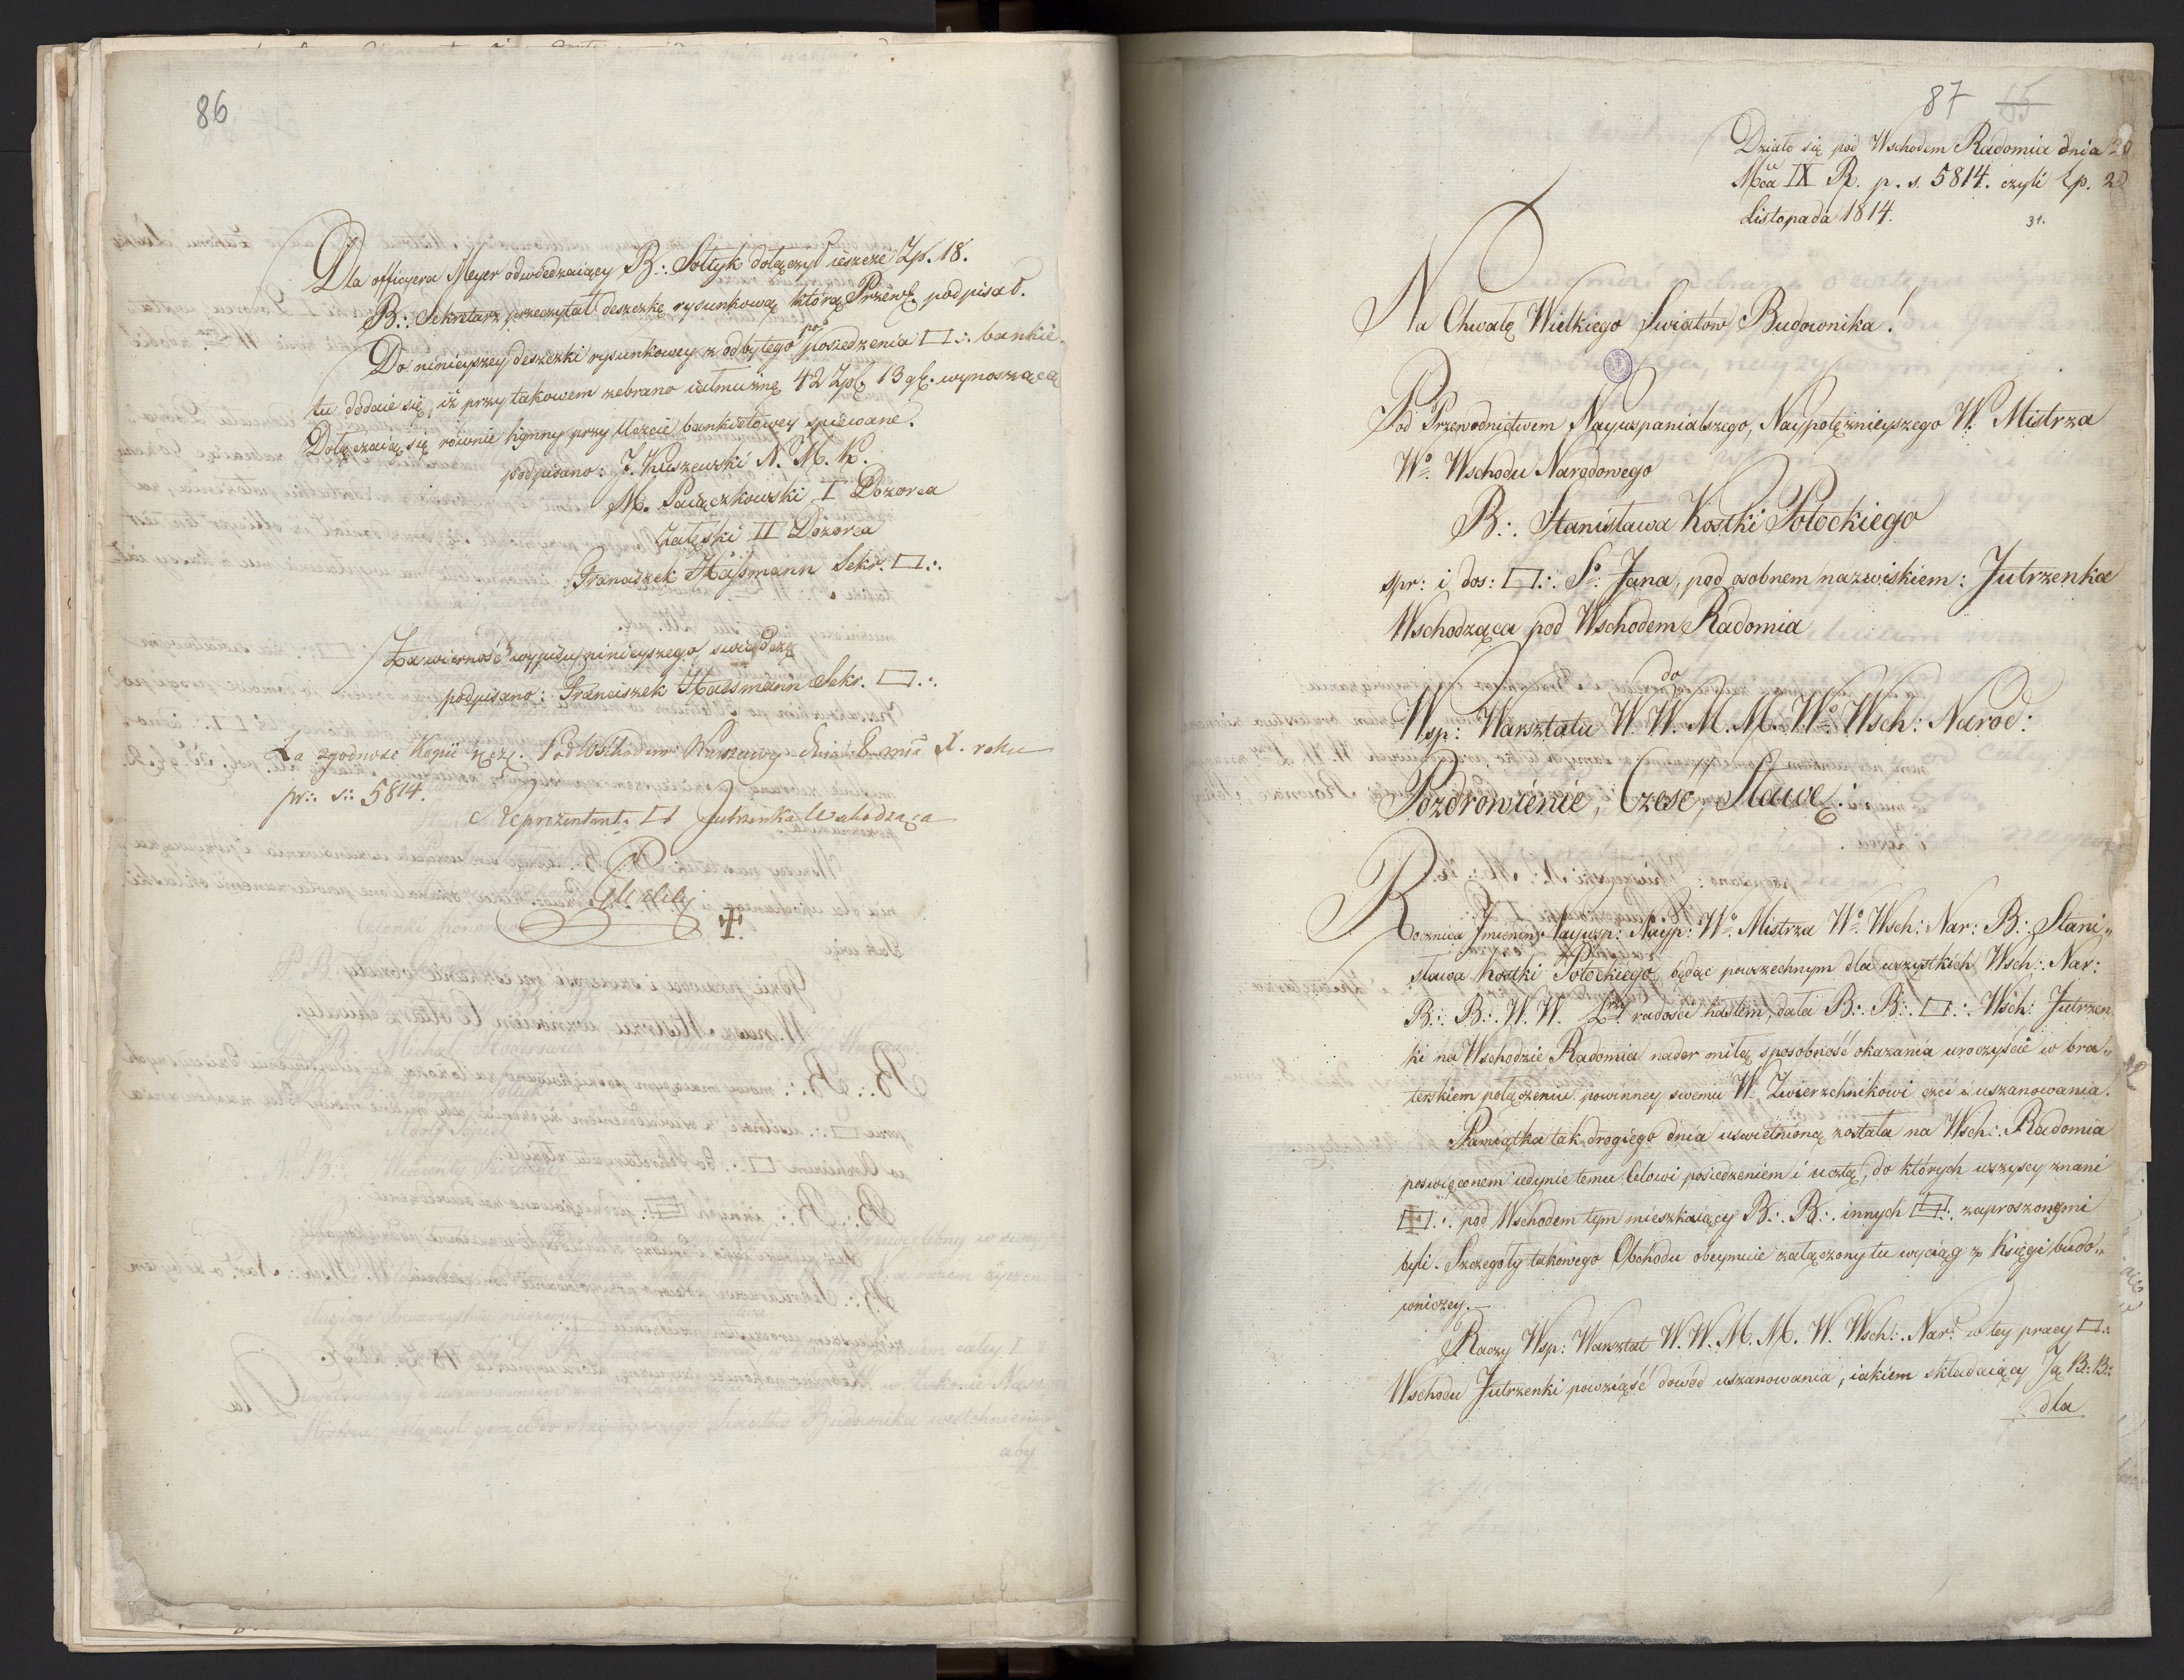 86
Dla officyera Meyer odwiedzaiący B∴ Sołtyk dołączył ieszcze Zp. 18.
B∴ Sekretarz przeczytał deszczkę rysunkową którą Przew. podpisał.
Do ninieyszey deszczki rysunkowey z odbytego po posiedzenia ▭∴ bankie-
tu dodaie się, iż przy takowem zebrano iałmużnę 42 Zpł. 13 gł. wynoszącą
Dołączaią się równie hymny przy Uczcie bankietowey spiewane.
podpisano: J. Kuszewski N. M. K.
M. Pawęczkowski I Dozorca
Załęski II Dozorca
Franciszek Hassmann Sekr. ▭∴
Za wierność wypisu ninieyszego świadczę
podpisano: Franciszek Haesmann Sekr. ▭∴
Za zgodność Kopii ręczę. Pod Wschodem Warszawy dnia 8 mca X. roku
pr∴ s∴ 5814.
Reprezentant ▭ Jutrzenka Wschodząca
87 65
Działo się pod Wschodem Radomia dnia 20
Mca IX R. p. s. 5814. czyli Zp. 20
Listopada 1814. 31.
Na Chwałę Wielkiego Swiatów Budownika!
Pod Przewodnictwem Nayuspanialszego, Naypotężnieyszego W. Mistrza
Wo. Wschodu Narodowego
B∴ Stanisława Kostki Potockiego
spr: i dos: ▭∴ So. Jana, pod osobnem nazwiskiem: Jutrzenka
Wschodząca pod Wschodem Radomia
do
Wsp: Warsztatu W. W. M. M. Wo. Wsch: Narod:
Pozdrowienie, Czesc, Sławę.
Rocznica Imienin Nayusp: Nayp: Wo. Mistrza Wo. Wsch: Nar: B∴ Stani„
sława Kostki Potockiego, będąc powszechnym dla wszystkich Wsch∴ Nar:
B∴ B∴ W. W. radości hasłem, dała B∴ B∴ ▭∴ Wsch: Jutrzen
ki na Wschodzie Radomia nader miłą sposobność okazania uroczyście w bra„
terskiem połączeniu powinney swemu W. Zwierzchnikowi czci i uszanowania.
Pamiątka tak drogiego dnia uswietnioną została na Wsch∴ Radomia
poswięconem iedynie temu Celowi posiedzeniem i ucztą, do których wszyscy znani
▭∴ pod Wschodem tym mieszkaiący B∴ B∴ innych ▭∴ zaproszonymi
byli. Szczegóły takowego Obchodu obeymuie załączony tu wyciąg z Księgi budo„
wniczey.
Raczy Wsp: Warsztat W. W. M. M. W. Wsch∴ Nar: w tey pracy ▭∴
Wschodu Jutrzenki powziąść dowód uszanowania, iakiem składaiący Ją B∴ B∴
dla